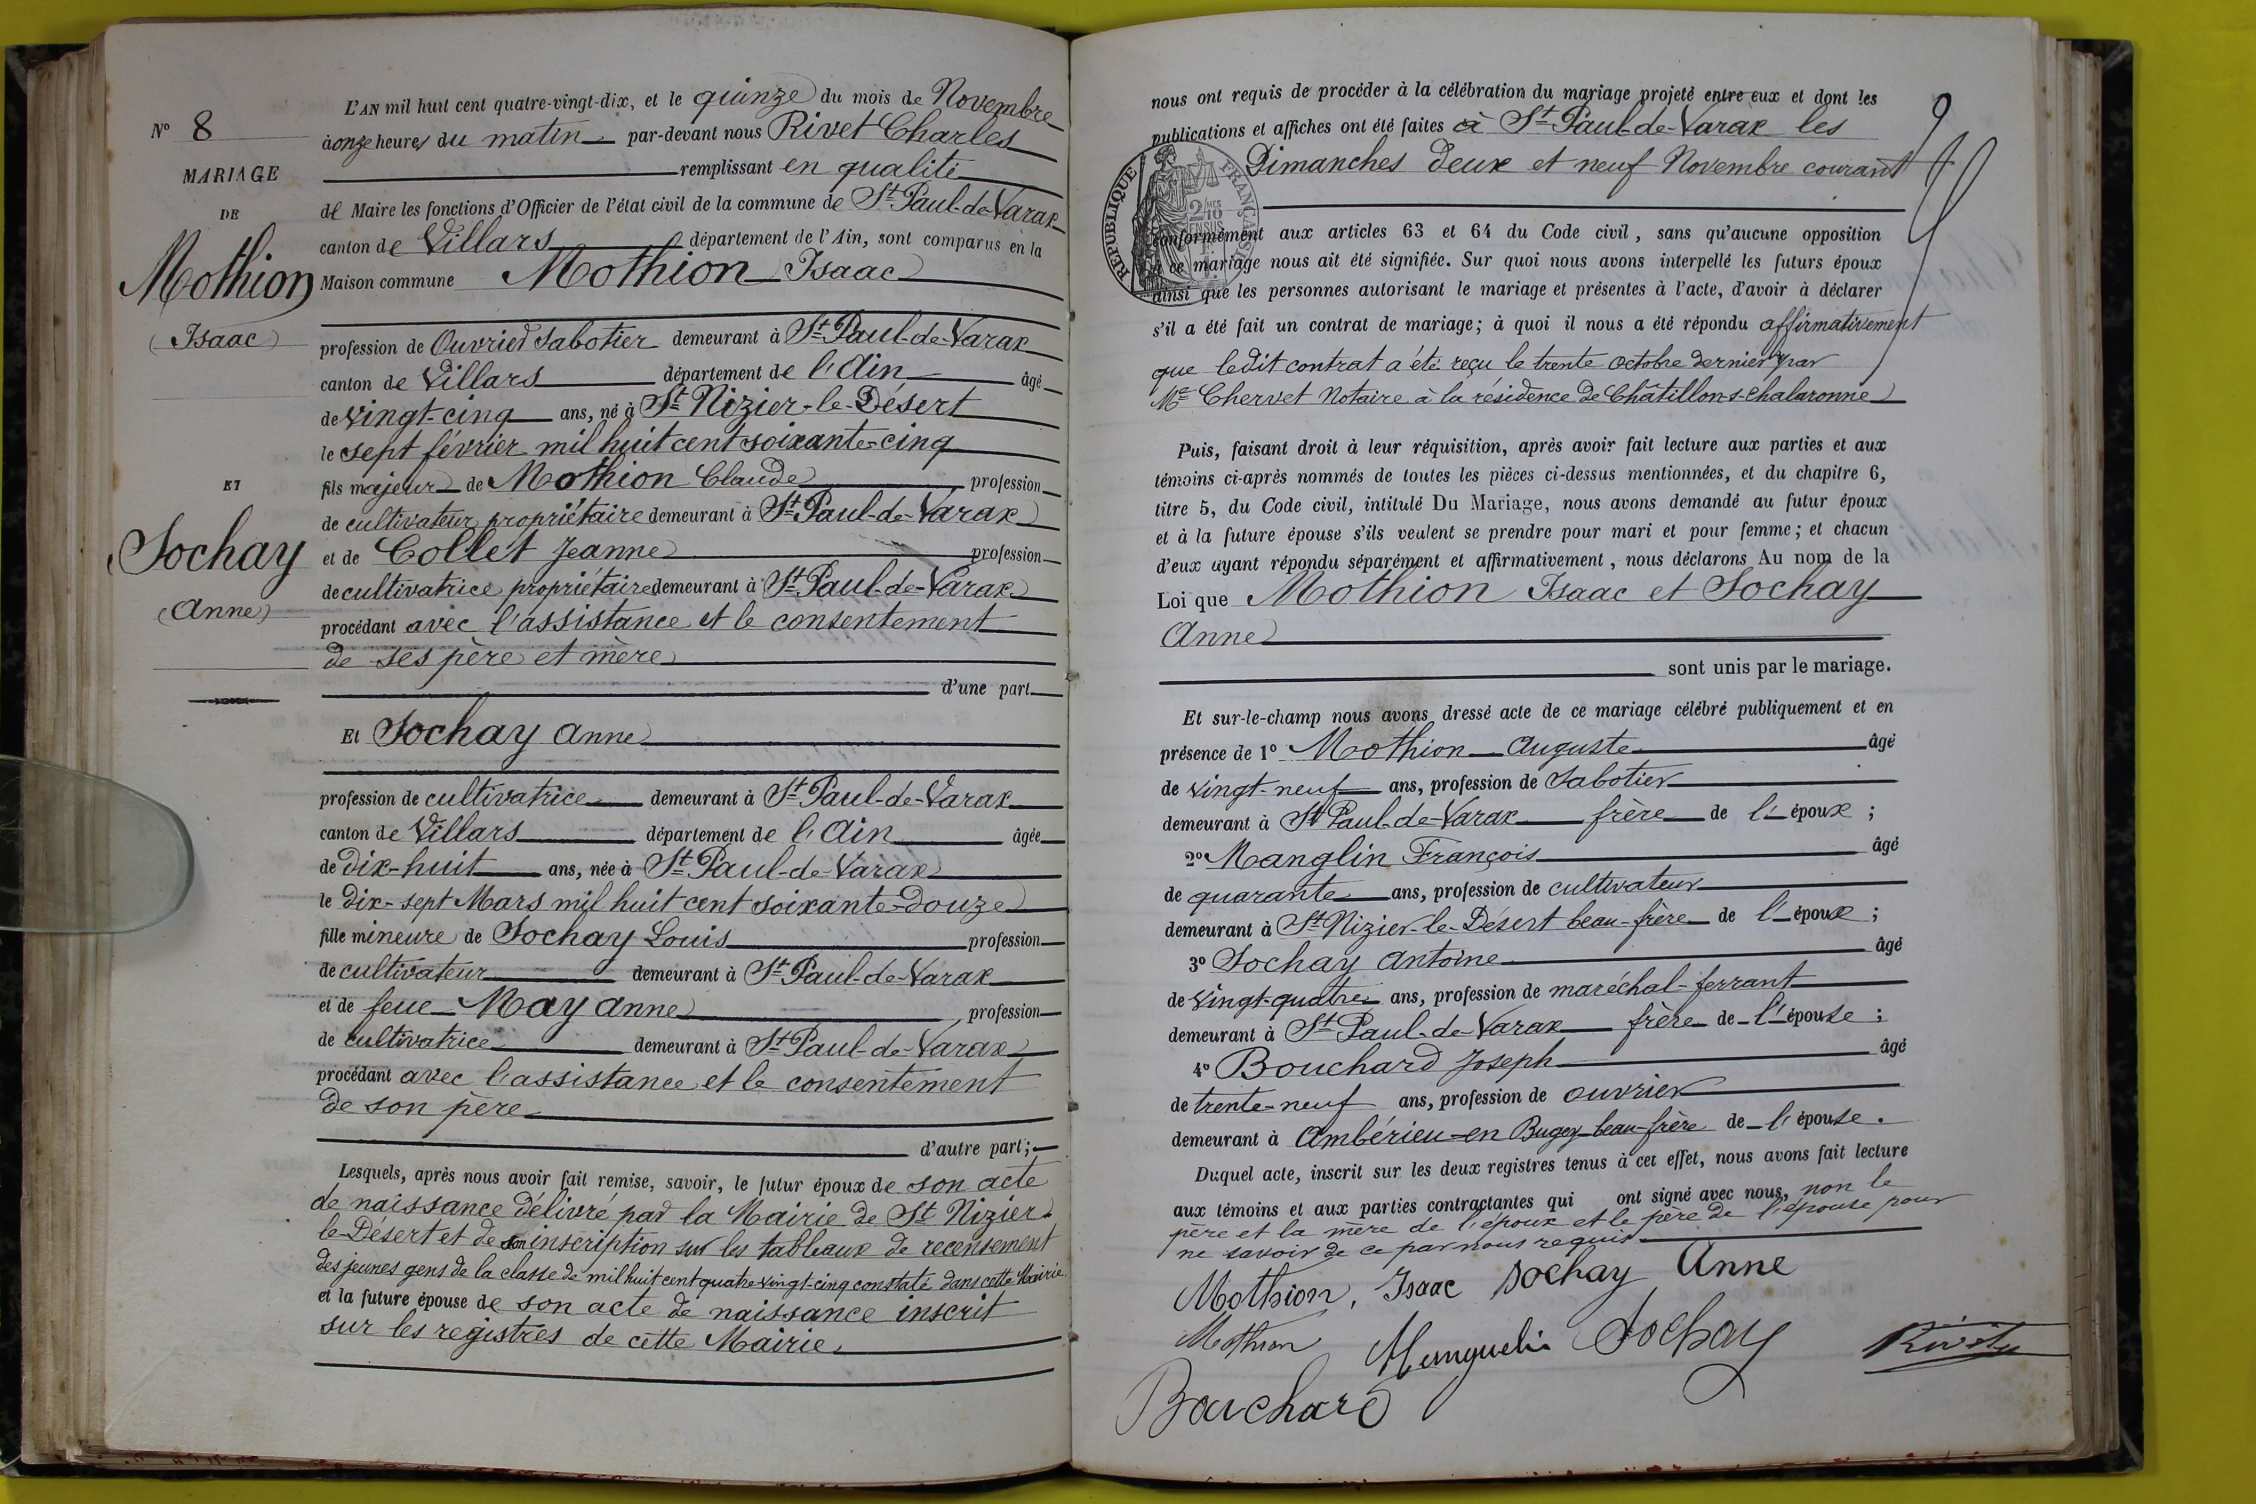 N° 8
MARIAGE
DE
Mothion
(Isaac)
ET
Sochay
(Anne)
L'AN mil huit cent quatre-vingt-dix, et le quinze du mois de Novembre
à onze heures du matin par-devant nous Rivet Charles
remplissant en qualité
de Maire les fonctions d'Officier de l'état civil de la commune de St Paul-de-Varax
canton de Villars département de l'Ain, sont comparus en la
Maison commune Mothion Isaac
profession de Ouvrier Sabotier demeurant à St Paul-de-Varax
canton de Villars département de l'Ain âgé
de vingt-cinq ans, né à St Nizier-le-Désert
le sept février mil huit cent soixante-cinq
fils majeur de Mothion Claude profession
de cultivateur propriétaire demeurant à St Paul-de-Varax
et de Collet Jeanne profession
de cultivatrice propriétaire demeurant à St Paul-de-Varax
procédant avec l'assistance et le consentement
de ses père et mère
d'une part
Et Sochay Anne
profession de cultivatrice demeurant à St Paul-de-Varax
canton de Villars département de l'Ain âgée
de dix-huit ans, née à St Paul-de-Varax
le dix-sept Mars mil huit cent soixante-douze
fille mineure de Sochay Louis profession
de cultivateur demeurant à St Paul-de-Varax
et de feue May Anne profession
de cultivatrice demeurant à St Paul-de-Varax
procédant avec l'assistance et le consentement
de son père
d'autre part;
Lesquels, après nous avoir fait remise, savoir, le futur époux de son acte
de naissance délivré par la Mairie de St Nizier-
le-Désert et de son inscription sur les tableaux de recensement
des jeunes gens de la classe de mil huit cent quatre vingt-cinq constaté dans cette Mairie
et la future épouse de son acte de naissance inscrit
sur les registres de cette Mairie
nous ont requis de procéder à la célébration du mariage projeté entre eux et dont les
publications et affiches ont été faites à St Paul-de-Varax les
Dimanches deux et neuf Novembre courant
RÉPUBLIQUE FRANÇAISE
2/10 MES
EN SUS
conformément aux articles 63 et 64 du Code civil, sans qu'aucune opposition
à ce mariage nous ait été signifiée. Sur quoi nous avons interpellé les futurs époux
ainsi que les personnes autorisant le mariage et présentes à l'acte, d'avoir à déclarer
s'il a été fait un contrat de mariage; à quoi il nous a été répondu affirmativement
que ledit contrat a été reçu le trente octobre dernier par
Me Chervet Notaire à la résidence de Châtillon-s-Chalaronne
Puis, faisant droit à leur réquisition, après avoir fait lecture aux parties et aux
témoins ci-après nommés de toutes les pièces ci-dessus mentionnées, et du chapitre 6,
titre 5, du Code civil, intitulé Du Mariage, nous avons demandé au futur époux
et à la future épouse s'ils veulent se prendre pour mari et pour femme; et chacun
d'eux ayant répondu séparément et affirmativement, nous déclarons Au nom de la
Loi que Mothion Isaac et Sochay
Anne
sont unis par le mariage.
Et sur-le-champ nous avons dressé acte de ce mariage célébré publiquement et en
présence de 1° Mothion Auguste âgé
de vingt-neuf ans, profession de Sabotier
demeurant à St Paul-de-Varax frère de l'époux;
2° Manglin François âgé
de quarante ans, profession de cultivateur
demeurant à St Nizier-le-Désert beau-frère de l'époux;
3° Sochay Antoine âgé
de vingt-quatre ans, profession de maréchal-ferrant
demeurant à St Paul-de-Varax frère de l'épouse;
4° Bouchard Joseph âgé
de trente-neuf ans, profession de ouvrier
demeurant à Ambérieu-en Bugey beau-frère de l'épouse.
Duquel acte, inscrit sur les deux registres tenus à cet effet, nous avons fait lecture
aux témoins et aux parties contractantes qui ont signé avec nous, non le
père et la mère de l'époux et le père de l'épouse pour
ne savoir de ce par nous requis
Mothion, Isaac Sochay Anne
Mothion Manguelin Sochay
Bouchard